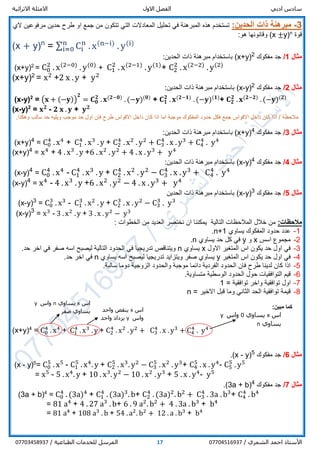 سادس ادبي الفصل الاول الامثلة الاثرائية
3- مبرهنة ذات الحدين: تستخدم هذه المبرهنة في تحليل المعادلات التي تتكون من جمع او طرح حدين مرفوعين لأي
قوة (x ±y)ⁿ وقانونها هو:
(x + y)ⁿ = ∑ⁿᵢ₌₀ Cⁿᵢ . x⁽ⁿ⁻ⁱ⁾ . y⁽ⁱ⁾
مثال 1/ جد مفكوك (x+y)² باستخدام مبرهنة ذات الحدين:
(x+y)² = C₀² . x⁽²⁻⁰⁾ . y⁽⁰⁾ + C₁² . x⁽²⁻¹⁾ . y⁽¹⁾ + C₂² . x⁽²⁻²⁾ . y⁽²⁾
(x+y)² = x² +2 x . y + y²
مثال 2/ جد مفكوك (x-y)² باستخدام مبرهنة ذات الحدين:
(x-y)² = (x + (−y))² = C₀² . x⁽²⁻⁰⁾ . (−y)⁽⁰⁾ + C₁² . x⁽²⁻¹⁾ . (−y)⁽¹⁾ + C₂² . x⁽²⁻²⁾ . (−y)⁽²⁾
(x-y)² = x² - 2 x . y + y²
مثال 3/ جد مفكوك (x+y)⁴ باستخدام مبرهنة ذات الحدين:
(x+y)⁴ = C₀⁴ . x⁴ + C₁⁴ . x³ . y + C₂⁴ . x² . y² + C₃⁴ . x . y³ + C₄⁴ . y⁴
(x+y)⁴ = x⁴ + 4 . x³ . y +6 . x² . y² + 4 . x . y³ + y⁴
مثال 4/ جد مفكوك (x-y)⁴ باستخدام مبرهنة ذات الحدين:
(x-y)⁴ = C₀⁴ . x⁴ − C₁⁴ . x³ . y + C₂⁴ . x² . y² − C₃⁴ . x . y³ + C₄⁴ . y⁴
(x-y)⁴ = x⁴ - 4 . x³ . y +6 . x² . y² − 4 . x . y³ + y⁴
مثال 5/ جد مفكوك (x-y)³ باستخدام مبرهنة ذات الحدين
(x-y)³ = C₀³ . x³ - C₁³ . x² . y + C₂³ . x . y² − C₃³ . y³
(x-y)³ = x³ - 3 . x² . y + 3 . x . y² − y³
ملاحظات: من خلال الملاحظات التالية يمكننا ان نختصر العديد من الخطوات :
1- عدد حدود المفكوك يساوي n+1.
2- مجموع اسس x و y في كل حد يساوي n.
3- في اول حد يكون اس المتغير الاول x يساوي n ويتناقص تدريجيا في الحدود التالية ليصبح اسه صفر في اخر حد.
4- في اول حد يكون اس المتغير y يساوي صفر ويتزايد تدريجيا ليصبح اسه يساوي n في اخر حد.
5- اذا كان لدينا طرح فان الحدود الفردية دائما موجبة والحدود الزوجية دوما سالبة.
6- قيم التوافقيات حول الحدود الوسطية متساوية.
7- اول توافقية واخر توافقية = 1
8- قيمة توافقية الحد الثاني وما قبل الاخير = n
كما مبين:
اس x يساوي n واس y يساوي صفر
اس x ينقص واحد واس y يزداد واحد
اس x يساوي 0 واس y يساوي n
(x+y)⁴ = C₀⁴ . x⁴ + C₁⁴ . x³ . y + C₂⁴ . x² . y² + C₃⁴ . x . y³ + C₄⁴ . y⁴
مثال 6/ جد مفكوك (x - y)⁵.
(x - y)⁵= C₀⁵ . x⁵ - C₁⁵ . x⁴ . y + C₂⁵ . x³ . y² − C₃⁵ . x² . y³ + C₄⁵ . x . y⁴ - C₅⁵ . y⁵
= x⁵ - 5 . x⁴ . y + 10 . x³ . y² − 10 . x² . y³ + 5 . x . y⁴ - y⁵
مثال 7/ جد مفكوك (3a + b)⁴.
(3a + b)⁴ = C₀⁴ . (3a)⁴ + C₁⁴ . (3a)³ . b + C₂⁴ . (3a)² . b² + C₃⁴ . 3a . b³ + C₄⁴ . b⁴
= 81 a⁴ + 4 . 27 a³ . b + 6 . 9 a² . b² + 4 . 3a . b³ + b⁴
= 81 a⁴ + 108 a³ . b + 54 . a² . b² + 12 . a . b³ + b⁴
الأستاذ احمد الشمري / 07704516937 17 المرسل للخدمات الطباعية / 07703458937